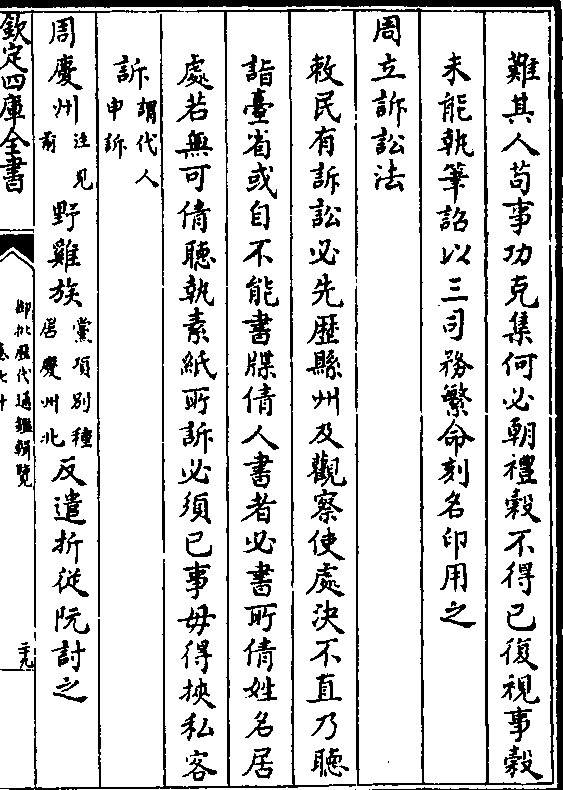 難其人苟事功克集何必朝禮穀不得已復視事穀
未能執筆詔以三司務繁命刻名印用之
周立訴訟法
敕民有訴訟必先歷縣州及觀察使處決不直乃聽
詣臺省或自不能書牒倩人書者必書所倩姓名居
處若無可倩聽執素紙所訴必須已事毋得挾私客
訴謂代人申訴
周慶州注見前野雞族黨項別種居慶州北反遣折從阮討之
欽定四庫全書
御批歷代通鑑輯覽
卷七十
二九